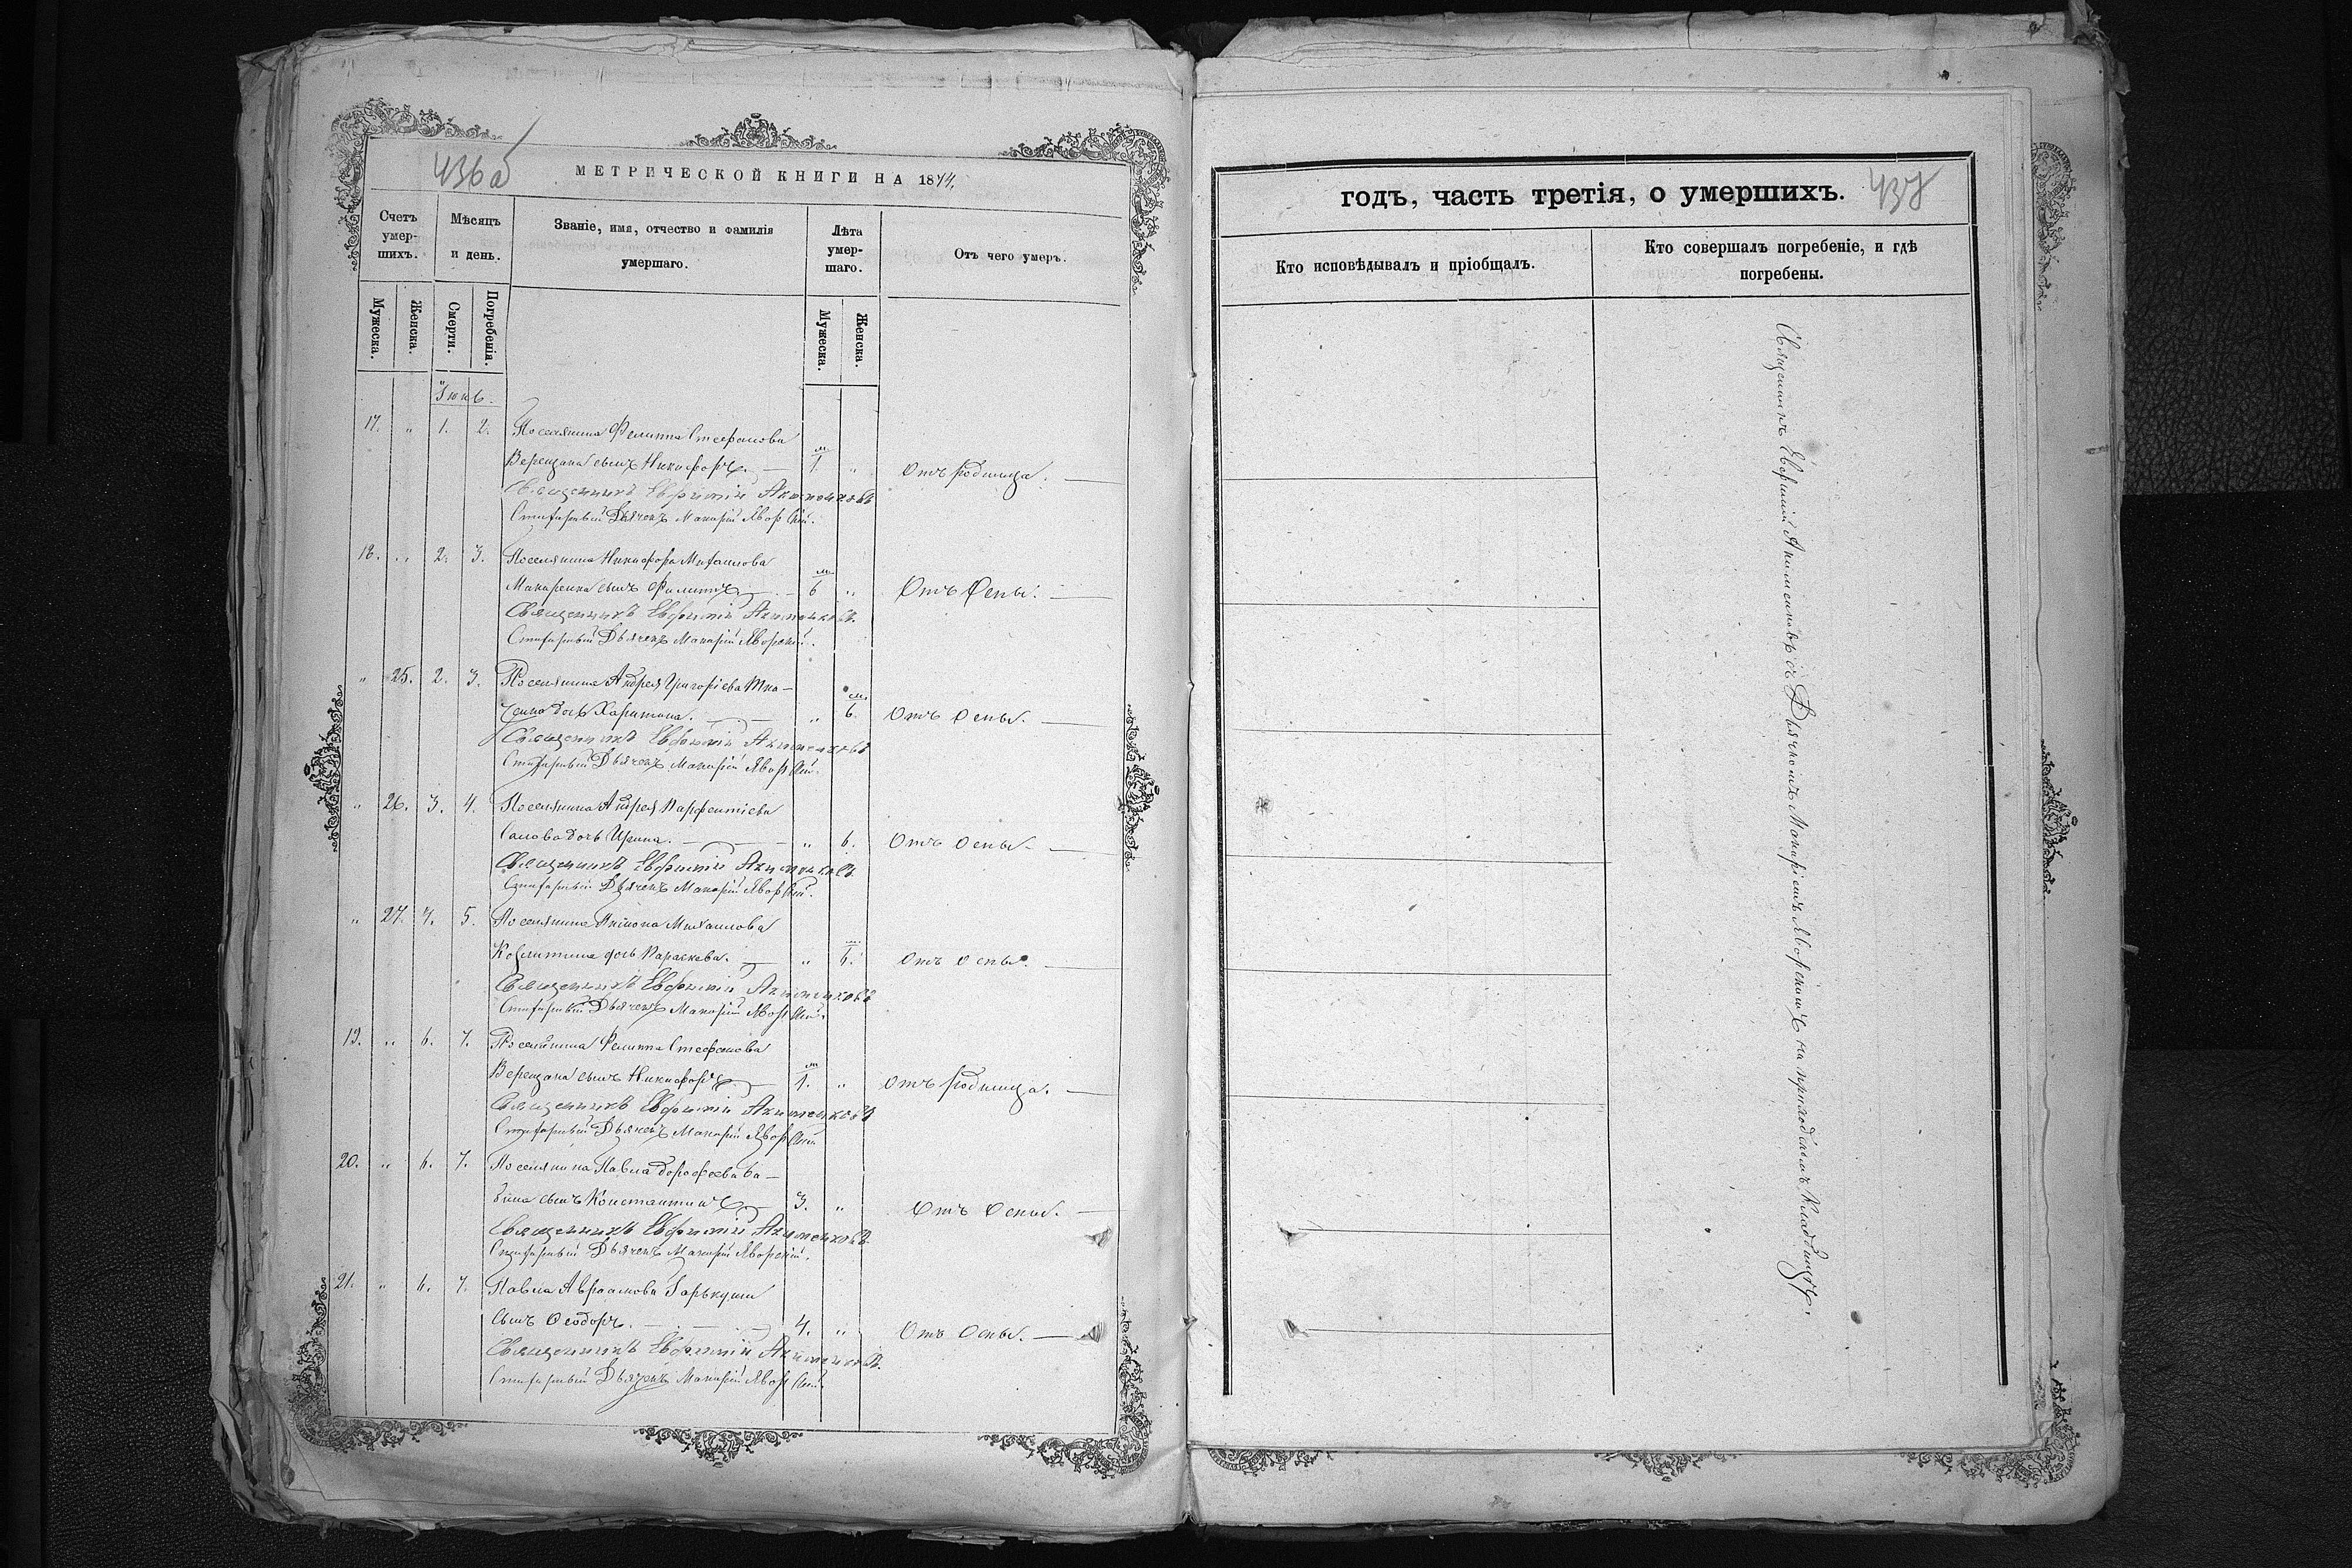 436об
МЕТРИЧЕСКОЙ КНИГИ НА 1874,
Счетъ умер-шихъ.
Мѣсяцъ и день.
Званіе, имя, отчество и фамилія умершаго.
Лѣта умер-шаго.
Отъ чего умеръ.
Мужеска.
Женска.
Смерти.
Погребенія.
Мужеска.
Женска.
Іюнь.
17. " 1. 2. Поселянина Филиппа Стефанова
Верещака сынъ Никифоръ. — 1 м. " Отъ Родимца. —
Священникъ Евфимій Акименковъ
Стихарный Дьячекъ Макарій Яворскій.
18. " 2. 3. Поселянина Никифора Михаилова
Макаренка сынъ Филиппъ — 6 м. " Отъ Оспы. —
Священникъ Евфимій Акименковъ.
Стихарный Дьячекъ Макарій Яворскій.
" 25. 2. 3. Поселянина Андрея Григоріева Тка-
ченка дочь Харитина. — " 6. м. Отъ Оспы. —
Священникъ Евфимій Акименковъ
Стихарный Дьячекъ Макарій Яворскій.
" 26. 3. 4. Поселянина Андрея Парфентіева
дочь Ирина. — " 6. Отъ Оспы. —
Священникъ Евфимій Акименковъ.
Стихарный Дьячекъ Макарій Яворскій.
" 27. 4. 5. Поселянина Михаилова
дочь Параскева. — " 6. м. Отъ Оспы. —
Священникъ Евфимій Акименковъ
Стихарный Дьячекъ Макарій Яворскій.
19. " 6. 7. Поселянина Филиппа Стефанова
Верещака сынъ Никифоръ — 1. м. " Отъ Родимца. —
Священникъ Евфимій Акименковъ
Стихарный Дьячекъ Макарій Яворскій
20. " 6. 7. Поселянина Павла Дорофеева Ба-
бича сынъ Константинъ — 3. " Отъ Оспы. —
Священникъ Евфимій Акименковъ.
Стихарный Дьячекъ Макарій Яворскій.
21. " 6. 7. Павла Авраамова Гаркуши
сынъ Ѳеодоръ. — 4. " Отъ Оспы. —
Священникъ Евфимій Акименковъ.
Стихарный Дьячекъ Макарій Яворскій.
годъ, часть третія, о умершихъ.
437
Кто исповѣдывалъ и пріобщалъ.
Кто совершалъ погребеніе, и гдѣ погребены.
Священникъ Евфимій Акименковъ съ Дьячкомъ Макаріемъ Яворскимъ на приходскомъ кладбищѣ.